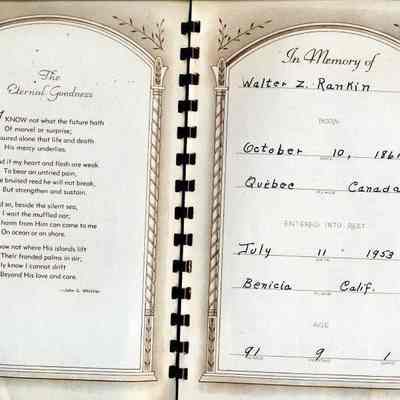 The
Eternal Goodness
KNOW not what the future hath
Of marvel or surprise;
sured alone that life and death
His mercy underlies.
d if my heart and flesh are weak
To bear an untried pain,
e bruised reed he will not break,
But strengthen and sustain.
d so, beside the silent sea,
I wait the muffled oar;
harm from Him can come to me
On ocean or on shore.
ow not where His islands lift
Their fronded palms in air;
ly know I cannot drift
Beyond His love and care.
—John G. Whittier
In Memory of
Walter Z. Rankin
BORN
October 10, 1861
DATE
Québec Canada
PLACE
ENTERED INTO REST
July 11 1953
DATE
Benicia Calif.
PLACE
AGE
91 9 1
YEARS MONTHS DAYS